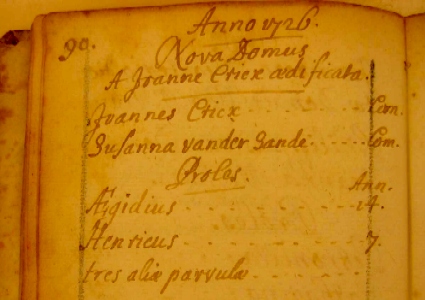 Anno 1726.
90.
Nova Domus
A Joanne Criex ædificata.
Joannes Criex . . . . . . . Com.
Susanna vander Sande . . . . . . Com.
Proles.
Ann.
Ægidius . . . . . . . . . 14.
Henricus . . . . . . . . . 7.
tres aliæ parvulæ . . . . . . .